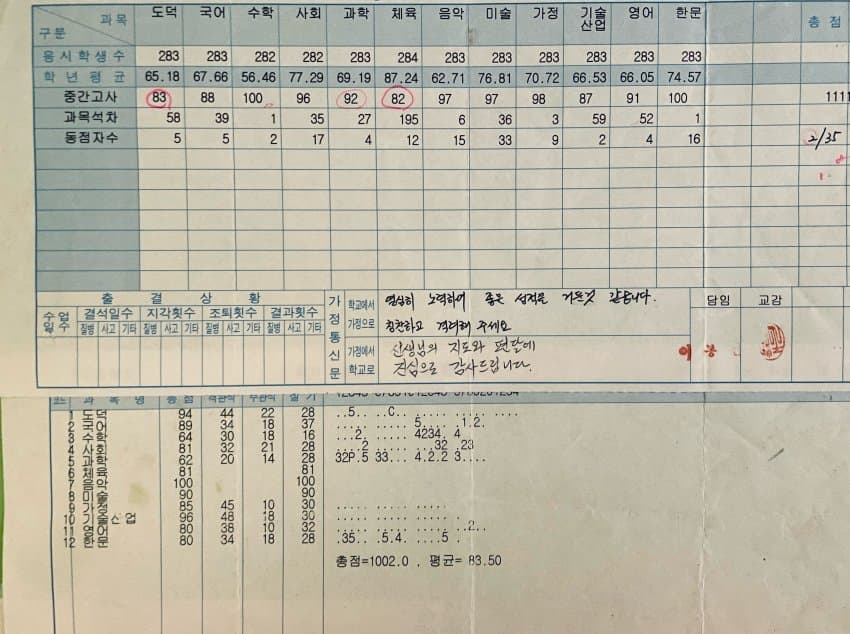 과목 도덕 국어 수학 사회 과학 체육 음악 미술 가정 기술산업 영어 한문 총점
구분
응시학생수 283 283 282 282 283 284 283 283 283 283 283 283
학년평균 65.18 67.66 56.46 77.29 69.19 87.24 62.71 76.81 70.72 66.53 66.05 74.57
중간고사 83 88 100 96 92 82 97 97 98 87 91 100 1111
과목석차 58 39 1 35 27 195 6 36 3 59 52 1
동점자수 5 5 2 17 4 12 15 33 9 2 4 16 2/35
출결상황
수업일수 결석일수 지각횟수 조퇴횟수 결과횟수
질병 사고 기타 질병 사고 기타 질병 사고 기타 질병 사고 기타
가정통신문
학교에서 가정으로
열심히 노력하여 좋은 성적을 거둔것 같습니다.
칭찬하고 격려해 주세요
가정에서 학교로
선생님의 지도와 편달에
진심으로 감사드립니다.
담임 교감
과목명 총점 객관식 주관식 실기
1 도덕 94 44 22 28 ..5....C.. ..... ..... ....
2 국어 89 34 18 37 ..... ..... 5.... .1.2.
3 수학 64 30 18 16 ...2. ..... 4234. 4
4 사회 81 32 21 28 ....2 ..... ...32 .23
5 과학 62 20 14 28 32P.5 33... 4.2.2 3....
6 체육 81 81
7 음악 100 100
8 미술 90 90
9 가정 85 45 10 30
10 기술산업 96 48 18 30
11 영어 80 38 10 32
12 한문 80 34 18 28 .35.. .5.4. ....5 .
총점=1002.0 , 평균= 83.50